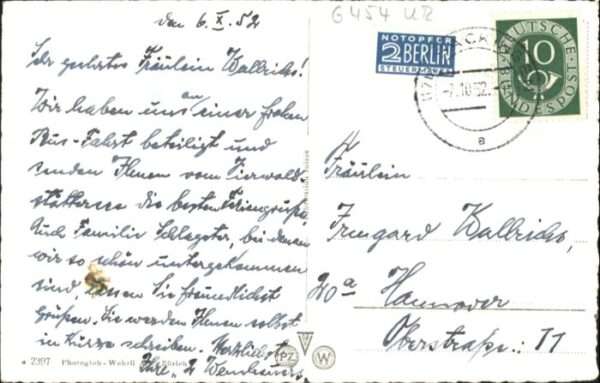 G 454 UR
den 6.X.52
Sehr geehrtes Fräulein Kallrichs!
Wir haben uns an einer frohen
Bus-Fahrt beteiligt und
senden Ihnen vom Vierwald-
stättersee die besten Feriengrüße.
Auch Familie Schlagoter, bei denen
wir so schön untergekommen
sind, lassen Sie freundlichst
grüßen. Sie werden Ihnen selbst
in Kürze schreiben. Herzlichst
Ihre 2
* 2397 Photogl.-Wehrli Zürich
PZ W
NOTOPFER
2 BERLIN
STEUERMARKE
DEUTSCHE
10
BUNDESPOST
-7.10.52.
a
Fräulein
Irmgard Kallrichs,
20a Hannover
Oberstraße: 11